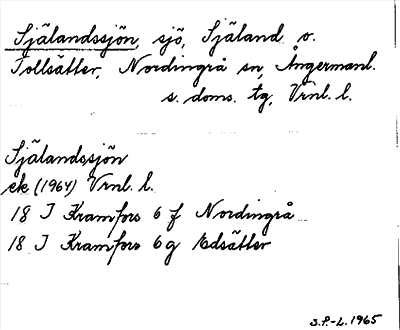 Själandssjön, sjö, Själand o.
Tollsätter, Nordingrå sn, Ångermanl.
s. doms. tg, Vrnl. l.
Själandssjön
ek (1964) Vrnl. l.
18 I Kramfors 6 f Nordingrå
18 I Kramfors 6 g Edsätter
S.F.-L. 1965